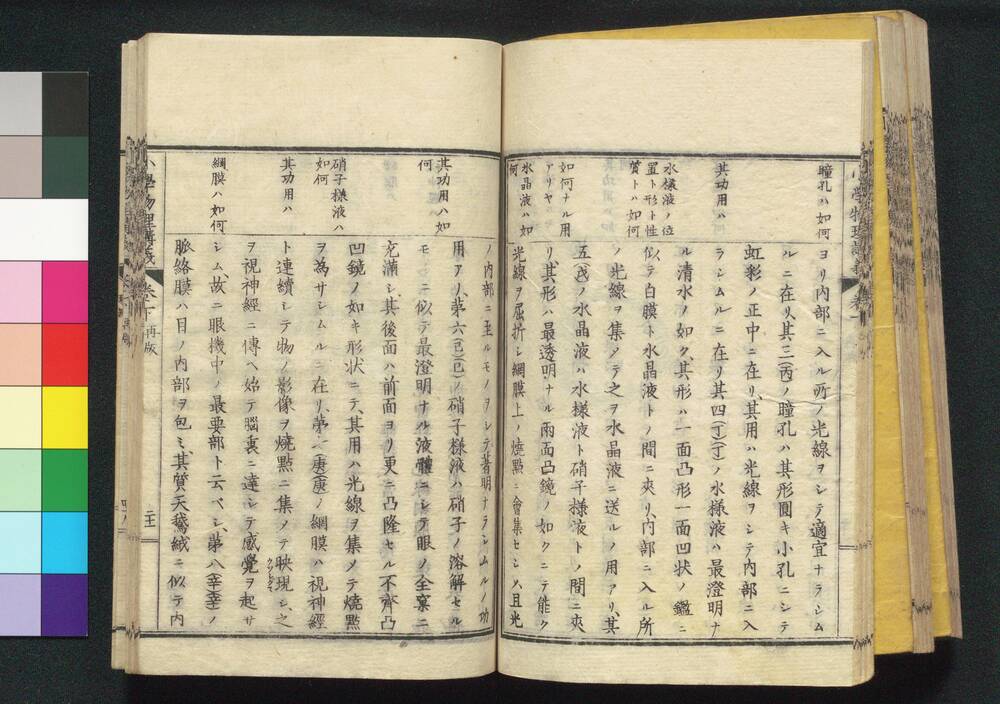 瞳孔ハ如何
其功用ハ
水樣液ノ位
置ト形ト性
質トハ如何
如何ナル用
アリヤ
水晶液ハ如
何
ヨリ内部ニ入ル所ノ光線ヲシテ適宜ナラシム
ルニ在リ其三(丙)ノ瞳孔ハ其形圓キ小孔ニシテ
虹彩ノ正中ニ在リ、其用ハ光線ヲシテ内部ニ入
ラシムルニ在リ其四(丁)(丁)ノ水樣液ハ最澄明ナ
ル清水ノ如ク、其形ハ一面凸形一面凹狀ノ鑑ニ
似テ白膜ト水晶液トノ間ニ夾リ、内部ニ入ル所
ノ光線ヲ集メテ之ヲ水晶液ニ送ルノ用アリ、其
五(戊)ノ水晶液ハ水樣液ト硝子樣液トノ間ニ夾
リ其形ハ最透明ナル兩面凸鏡ノ如クニテ能ク
光線ヲ屈折シ網膜上ノ燒點ニ會集セシメ且光
其功用ハ如
何
硝子樣液ハ
如何
其功用ハ
網膜ハ如何
ノ内部ニ至ルモノヲシテ著明ナラシムルノ功
用アリ、第六(己)(己)ノ硝子樣液ハ硝子ノ溶解セル
モノニ似テ最澄明ナル液體ニシテ眼ノ全窠ニ
充滿シ、其後面ハ前面ヨリ更ニ凸隆セル不齊凸
凹鏡ノ如キ形狀ニテ、其用ハ光線ヲ集メテ燒點
ヲ為サシムルニ在リ、第七(庚)(庚)ノ網膜ハ視神經
ト連續シテ物ノ影像ヲ燒點ニ集メテ映現シ、之
ヲ視神經ニ傳ヘ始テ腦裏ニ達シテ感覺ヲ起サ
シム、故ニ眼機中ノ最要部ト云ベシ、第八(辛)(辛)ノ
脈絡膜ハ目ノ内部ヲ包ミ、其質天鵞絨ニ似テ内
小學物理講義
卷下
再版